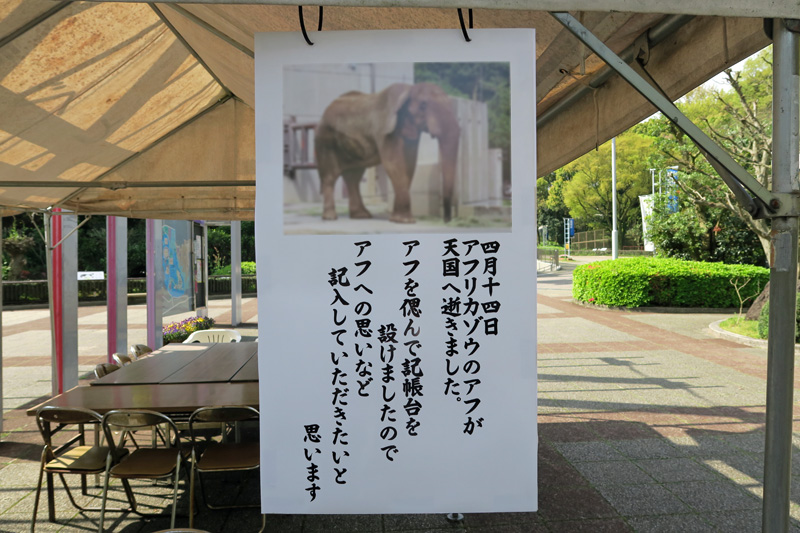 四月十四日
アフリカゾウのアフが
天国へ逝きました。
アフを偲んで記帳台を
設けましたので
アフへの思いなど
記入していただきたいと
思います